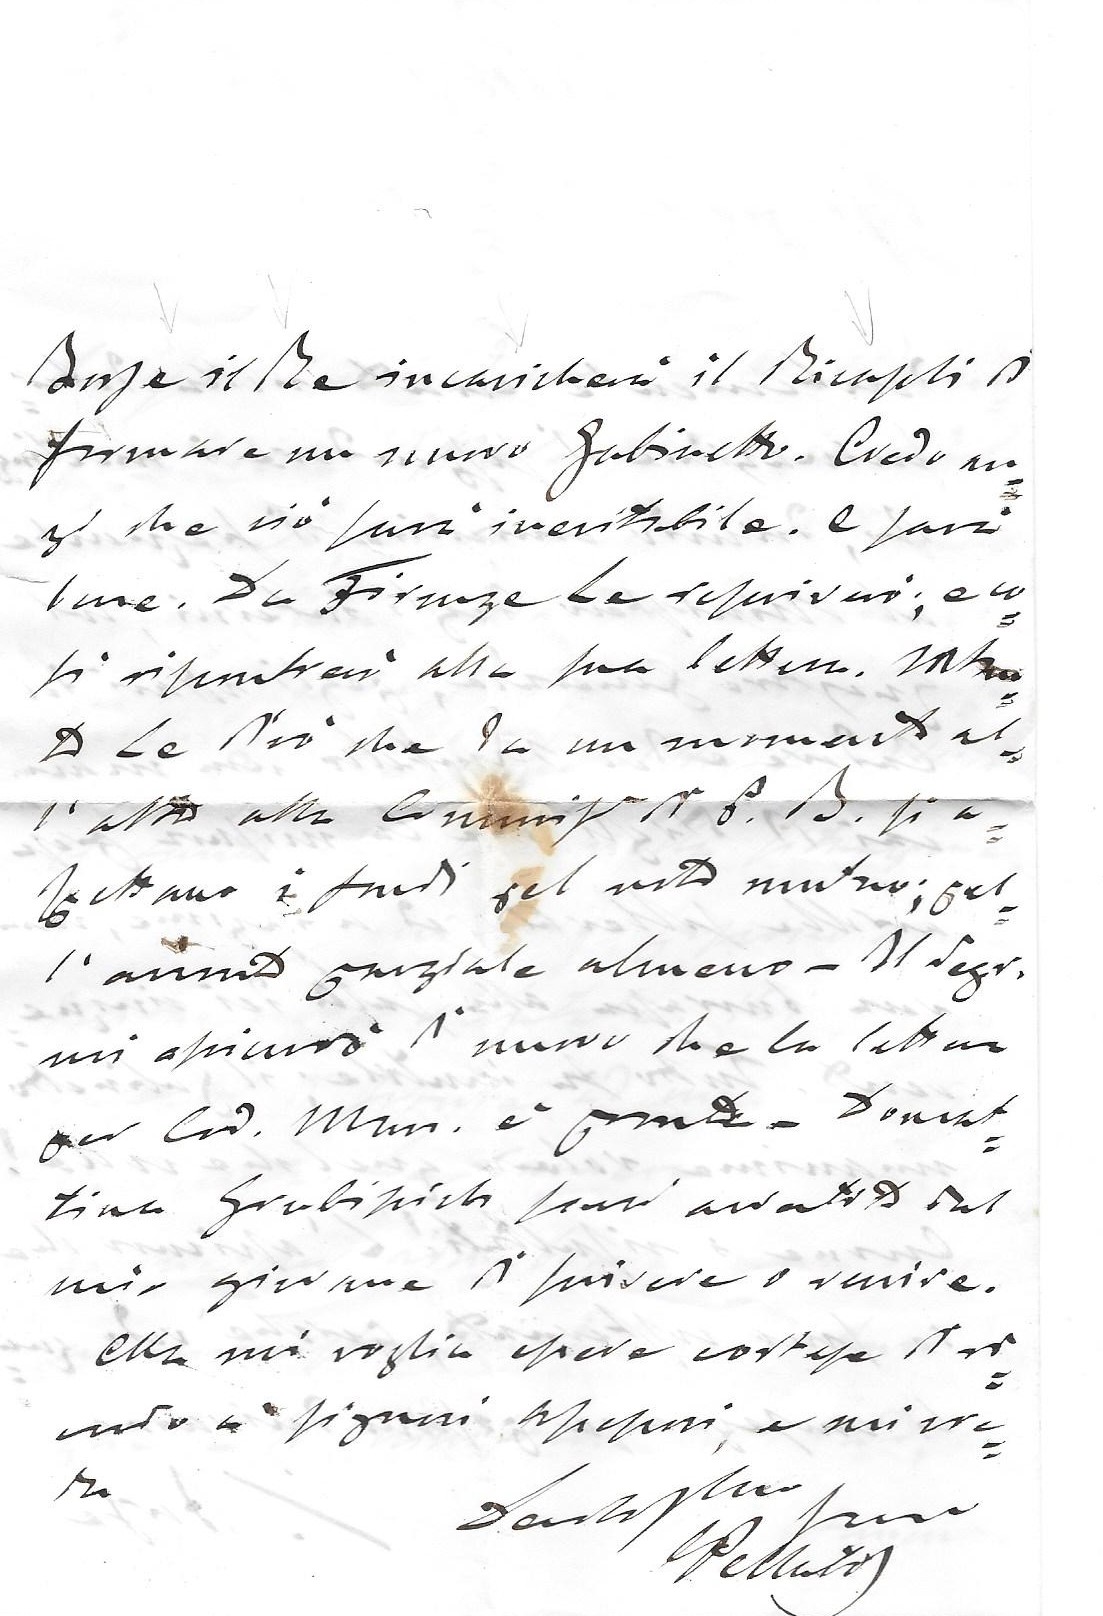 Forse il Re incaricherà il Ricasoli di
formare un nuovo Gabinetto. Credo an=
zi che ciò sarà inevitabile. E sarà
bene. Da Firenze Le riscriverò; e co=
sì risponderò alla sua lettera. Intan=
to Le dirò che da un momento al=
l'altro alla Commiss.e di P. B. si a=
spettano i fondi pel noto mutuo; pel=
l'acconto parziale almeno — Il Segr.
mi assicurò di nuovo che la lettera
per Cod. Mun. è pronta — Domat=
tina Grubissich sarà avvertito dal
mio giovane di scrivere o venire.
Ella mi voglia essere cortese di ri=
cordo a' signori Assessori, e mi cre=
da
Devotissimo suo
Pellatis